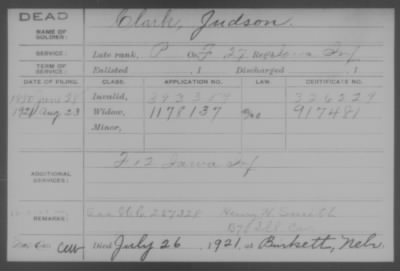 DEAD
NAME OF SOLDIER: Clark, Judson.
SERVICE: Late rank, P Co. F 27 Reg't Iowa Inf
TERM OF SERVICE: Enlisted , 1 Discharged , 1
DATE OF FILING. CLASS. APPLICATION NO. LAW. CERTIFICATE NO.
1880 June 28 Invalid, 393359 326229
1921 Aug 23 Widow, 1178137 917481
Minor,
ADDITIONAL SERVICES: F 12 Iowa Inf
REMARKS: Henry H. Smith
Died July 26, 1921, at Burkett, Nebr.